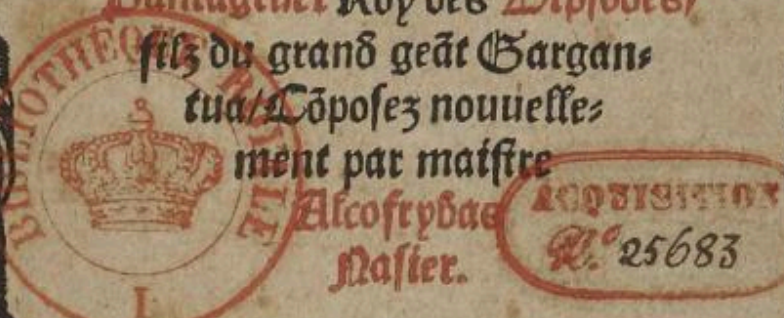 Pantagruel Roy des Dipsodes/
filz du grand geãt Gargan⸗
tua/Cõposez nouuelle⸗
ment par maistre
Alcofrybas
Nasier.
BIBLIOTHEQUE ROYALE
I
ACQUISITION
N.º 25683